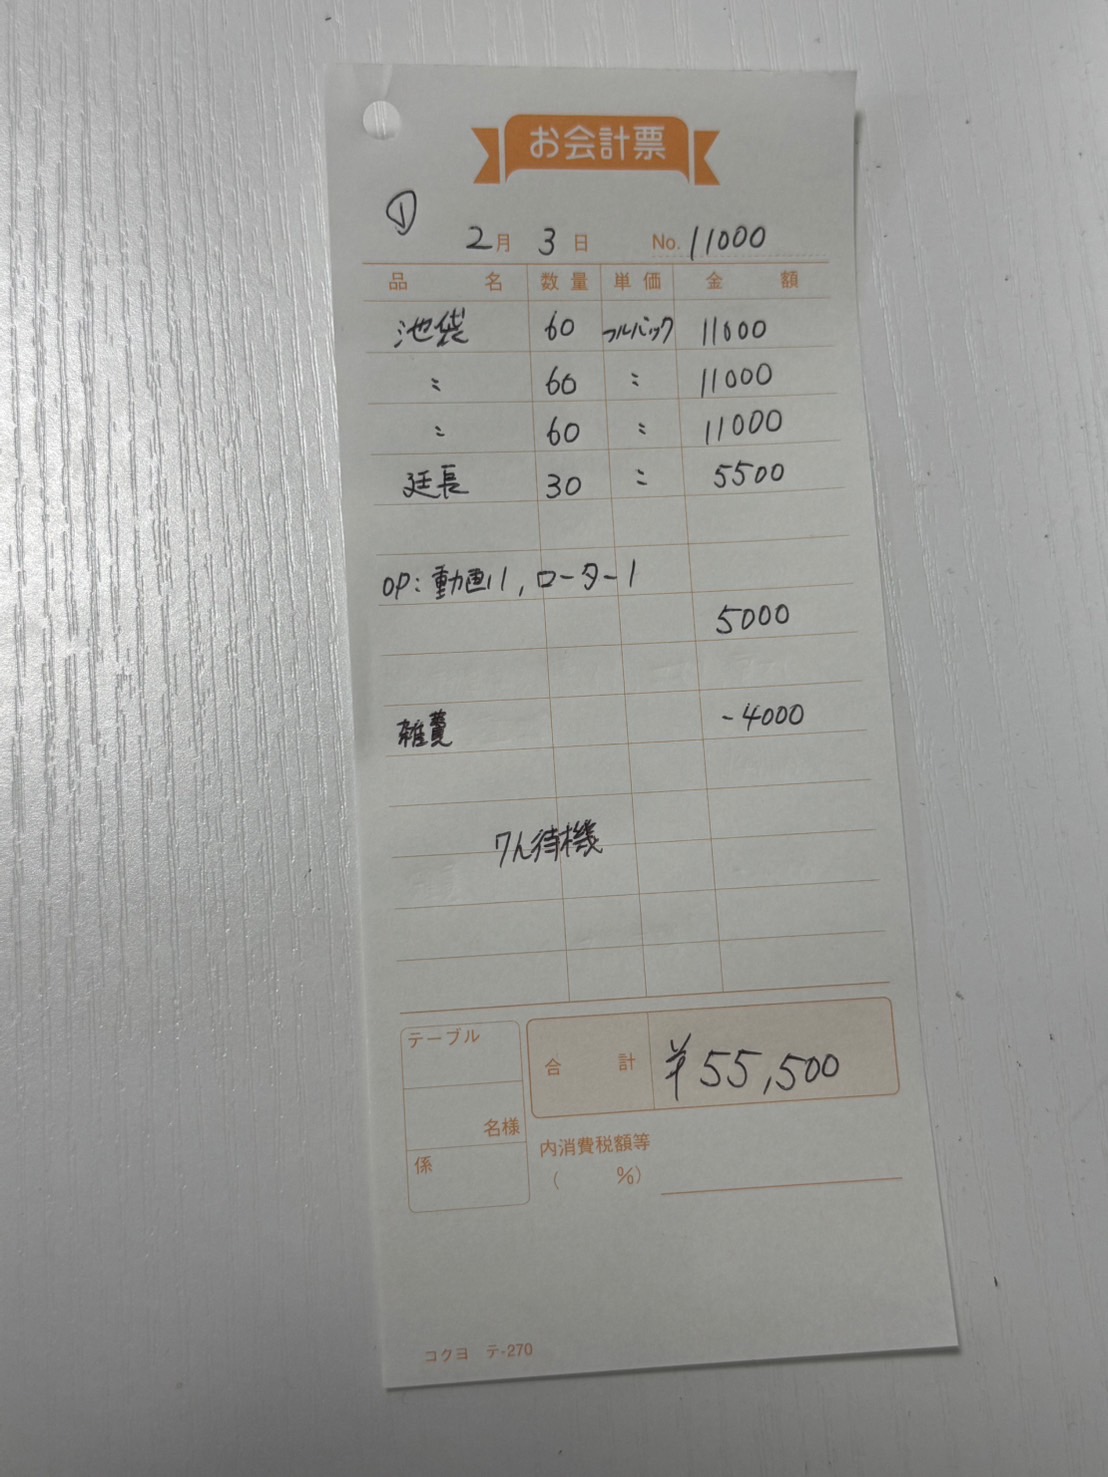 お会計票
①
2月 3日 No. 11000
品名 数量 単価 金額
池袋 60 フルバック 11000
〃 60 〃 11000
〃 60 〃 11000
延長 30 〃 5500
OP: 動画11, ローター1
5000
雑費 -4000
7h待機
テーブル
合計 ¥55,500
名様
係
内消費税額等
( %)
コクヨ テ-270